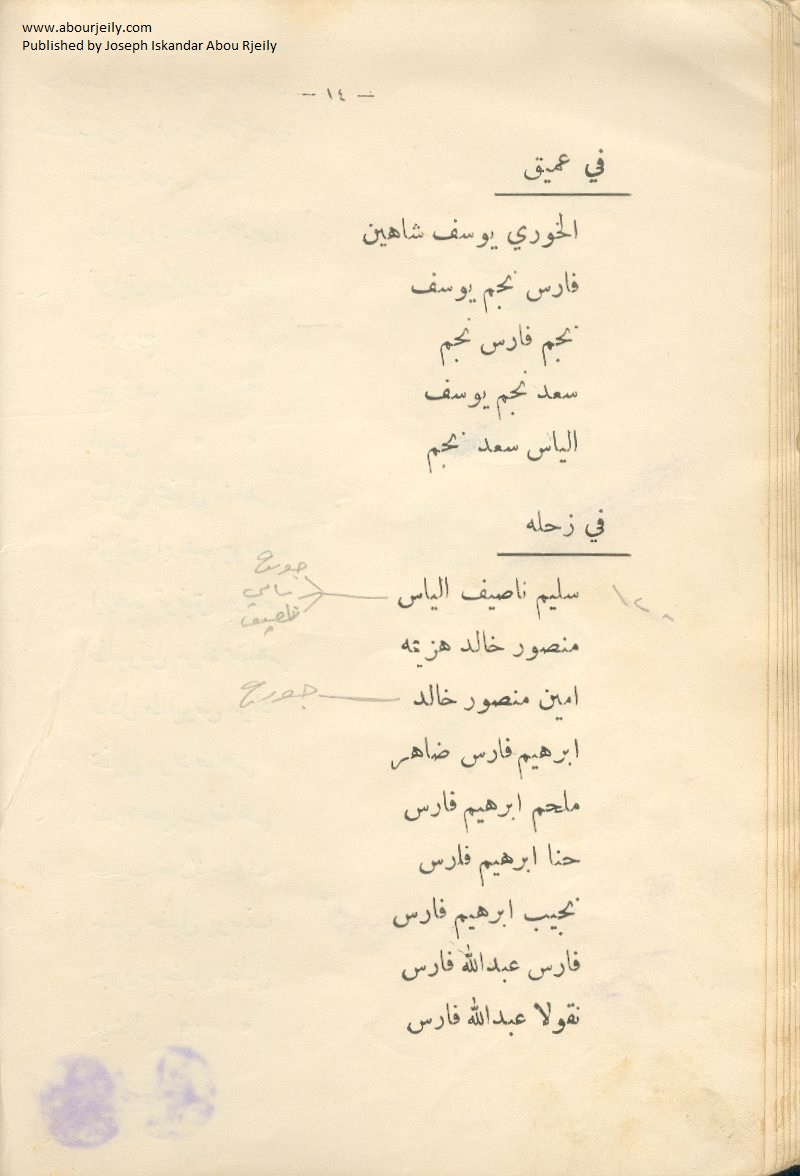 www.abourjeily.com
Published by Joseph Iskandar Abou Rjeily
— ١٤ —
في عميق
الخوري يوسف شاهين
فارس نجم يوسف
نجم فارس نجم
سعد نجم يوسف
الياس سعد نجم
في زحله
جورج
سليم ناصيف الياس
سامي
ناصيف
منصور خالد هزيمه
امين منصور خالد
جورج
ابرهيم فارس ضاهر
ملحم ابرهيم فارس
حنا ابرهيم فارس
نجيب ابرهيم فارس
فارس عبدالله فارس
نقولا عبدالله فارس